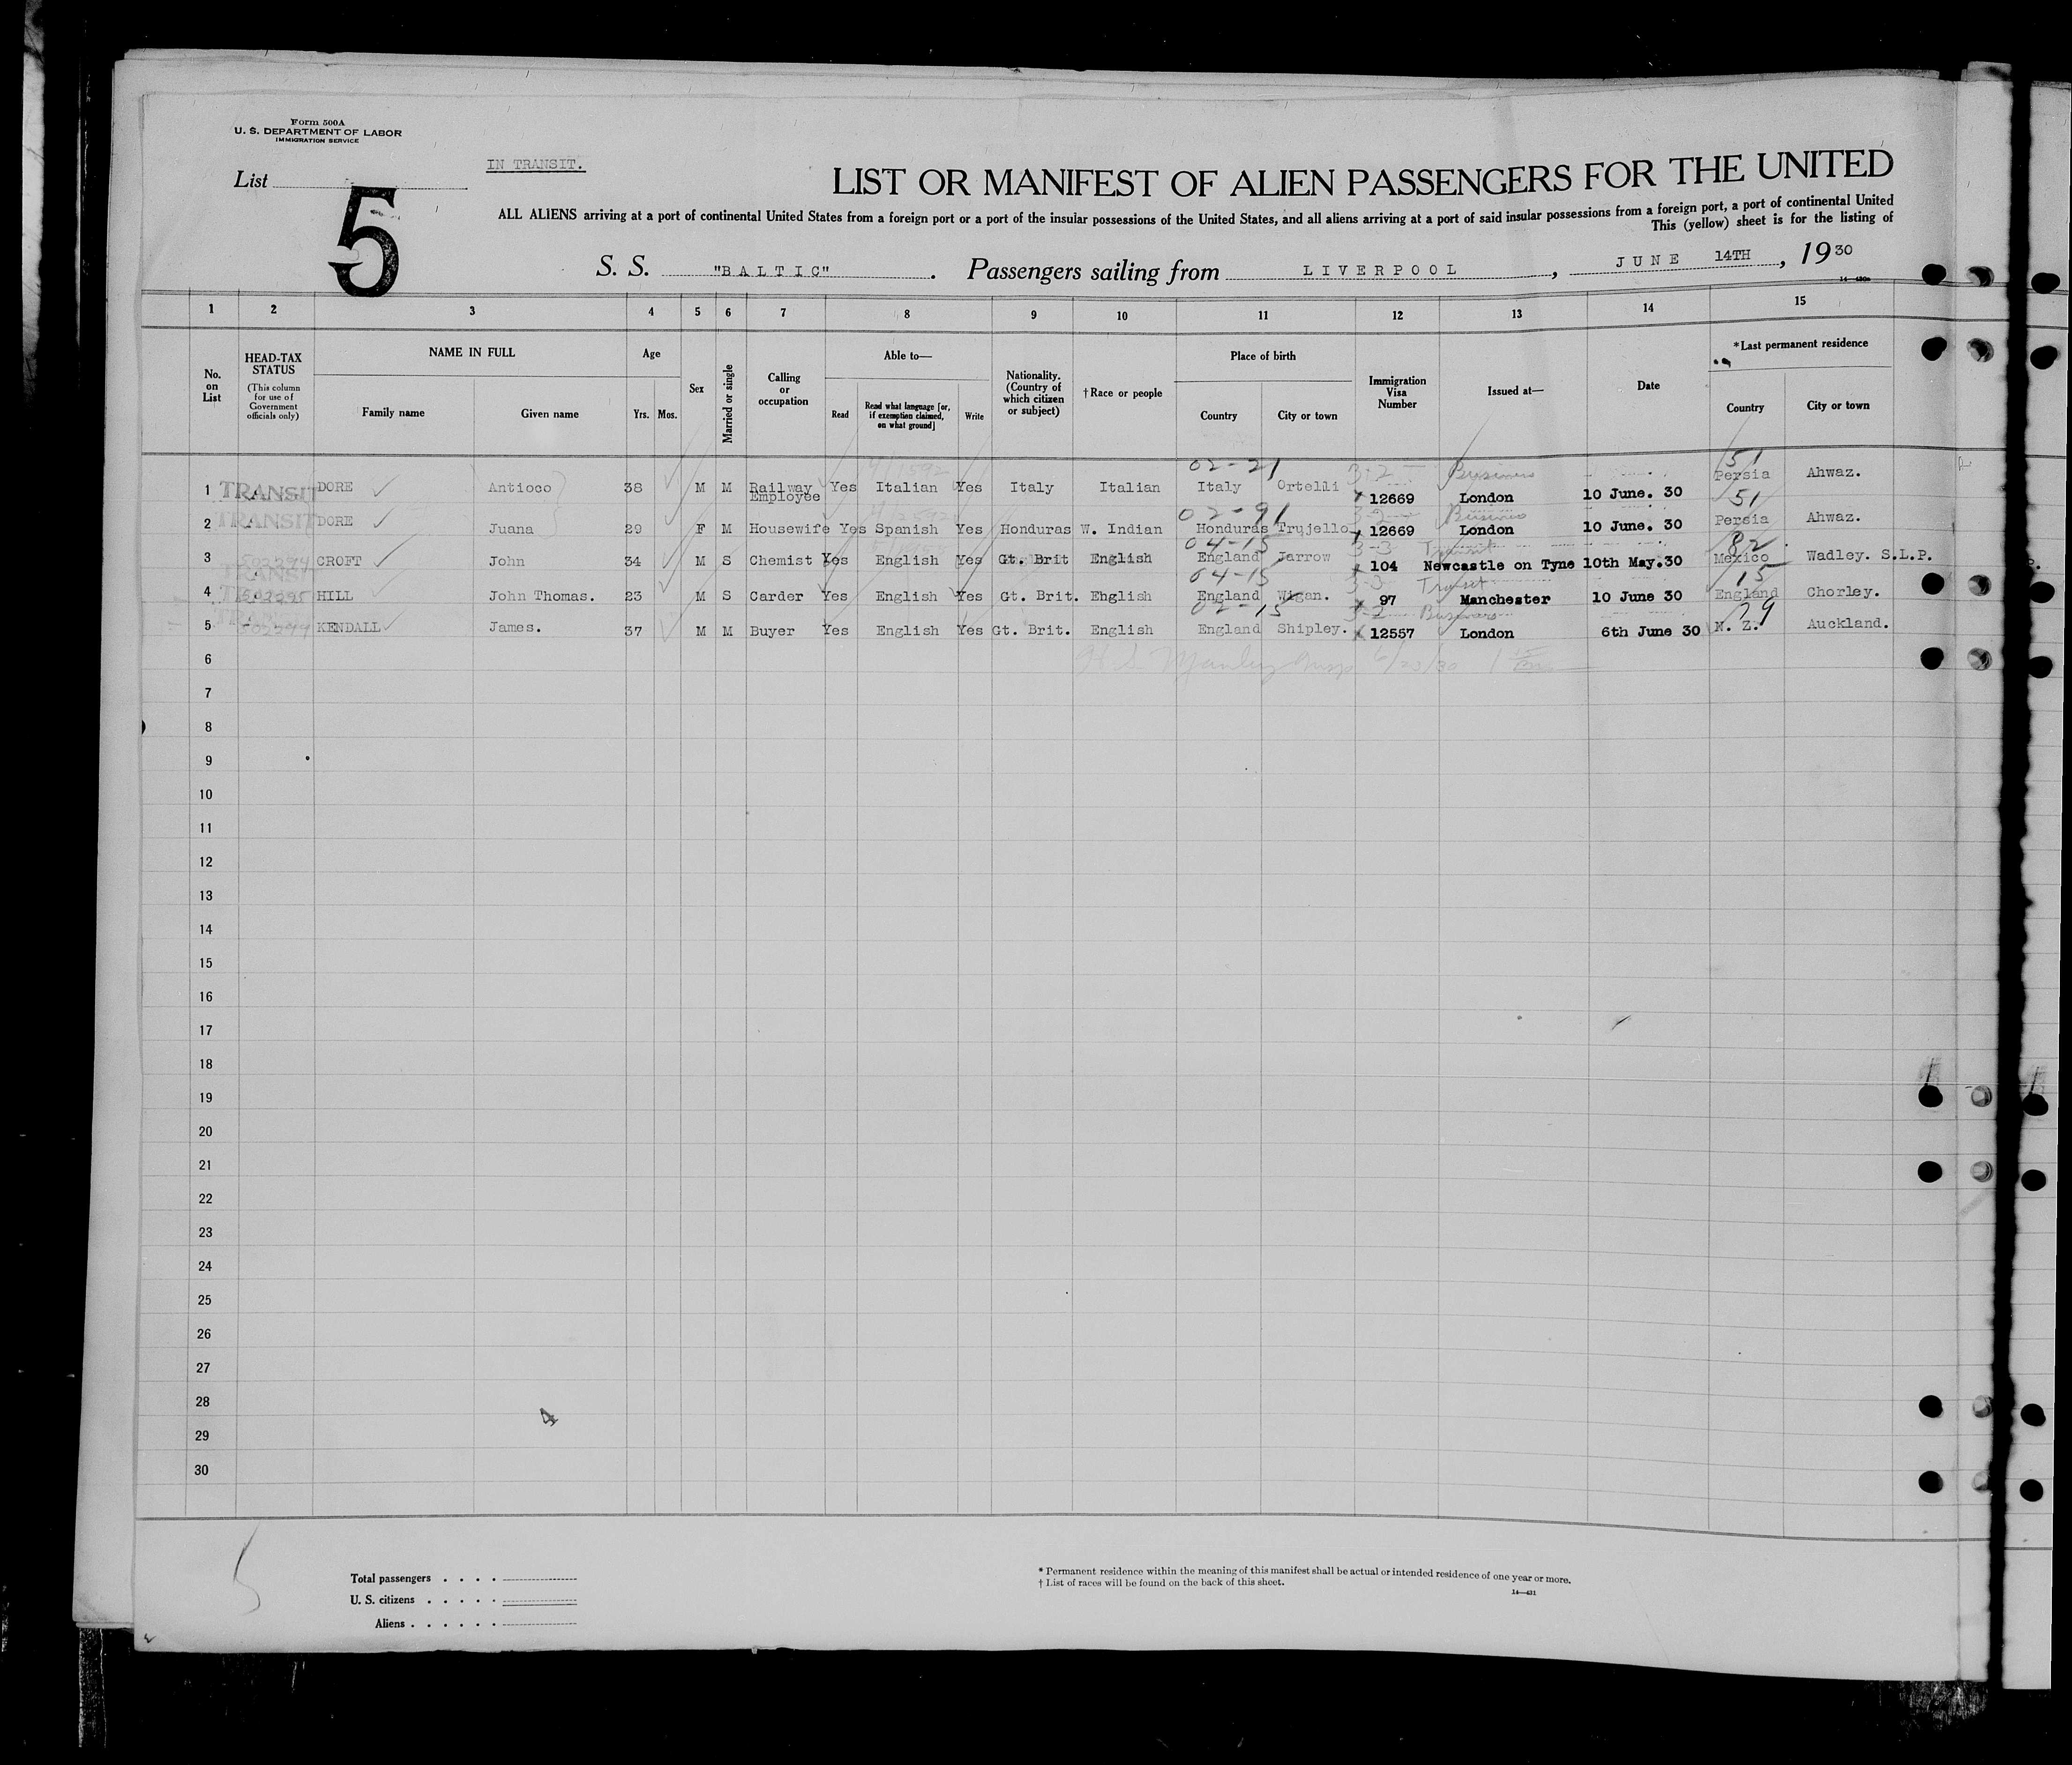 Form 500A
U. S. DEPARTMENT OF LABOR
IMMIGRATION SERVICE
IN TRANSIT.
List
5
LIST OR MANIFEST OF ALIEN PASSENGERS FOR THE UNITED
ALL ALIENS arriving at a port of continental United States from a foreign port or a port of the insular possessions of the United States, and all aliens arriving at a port of said insular possessions from a foreign port, a port of continental United
This (yellow) sheet is for the listing of
S. S. "BALTIC". Passengers sailing from LIVERPOOL, JUNE 14TH, 1930
1 2 3 4 5 6 7 8 9 10 11 12 13 14 15
No. on List
HEAD-TAX STATUS
(This column for use of Government officials only)
NAME IN FULL
Family name Given name
Age
Yrs. Mos.
Sex
Married or single
Calling or occupation
Able to—
Read
Read what language [or, if exemption claimed, on what ground]
Write
Nationality. (Country of which citizen or subject)
†Race or people
Place of birth
Country City or town
Immigration Visa Number
Issued at—
Date
*Last permanent residence
Country City or town
02-21 3-2 Business 51
1 TRANSIT DORE Antioco 38 M M Railway Employee Yes Italian Yes Italy Italian Italy Ortelli 12669 London 10 June. 30 Persia Ahwaz.
02-91 3-2 Business 51
2 TRANSIT DORE Juana 29 F M Housewife Yes Spanish Yes Honduras W. Indian Honduras Trujello 12669 London 10 June. 30 Persia Ahwaz.
04-15 3-3 Transit 82
3 CROFT John 34 M S Chemist Yes English Yes Gt. Brit English England Jarrow 104 Newcastle on Tyne 10th May.30 Mexico Wadley. S.L.P.
TRANSIT 04-15 3-3 Transit 15
4 HILL John Thomas. 23 M S Carder Yes English Yes Gt. Brit. Ehglish England Wigan. 97 Manchester 10 June 30 England Chorley.
02-15 3-2 Business 29
5 KENDALL James. 37 M M Buyer Yes English Yes Gt. Brit. English England Shipley. 12557 London 6th June 30 N. Z. Auckland.
6 6/23/30
7
8
9
10
11
12
13
14
15
16
17
18
19
20
21
22
23
24
25
26
27
28
4
29
30
5
Total passengers . . . .
U. S. citizens . . . . .
Aliens . . . . . .
* Permanent residence within the meaning of this manifest shall be actual or intended residence of one year or more.
† List of races will be found on the back of this sheet.
14—431